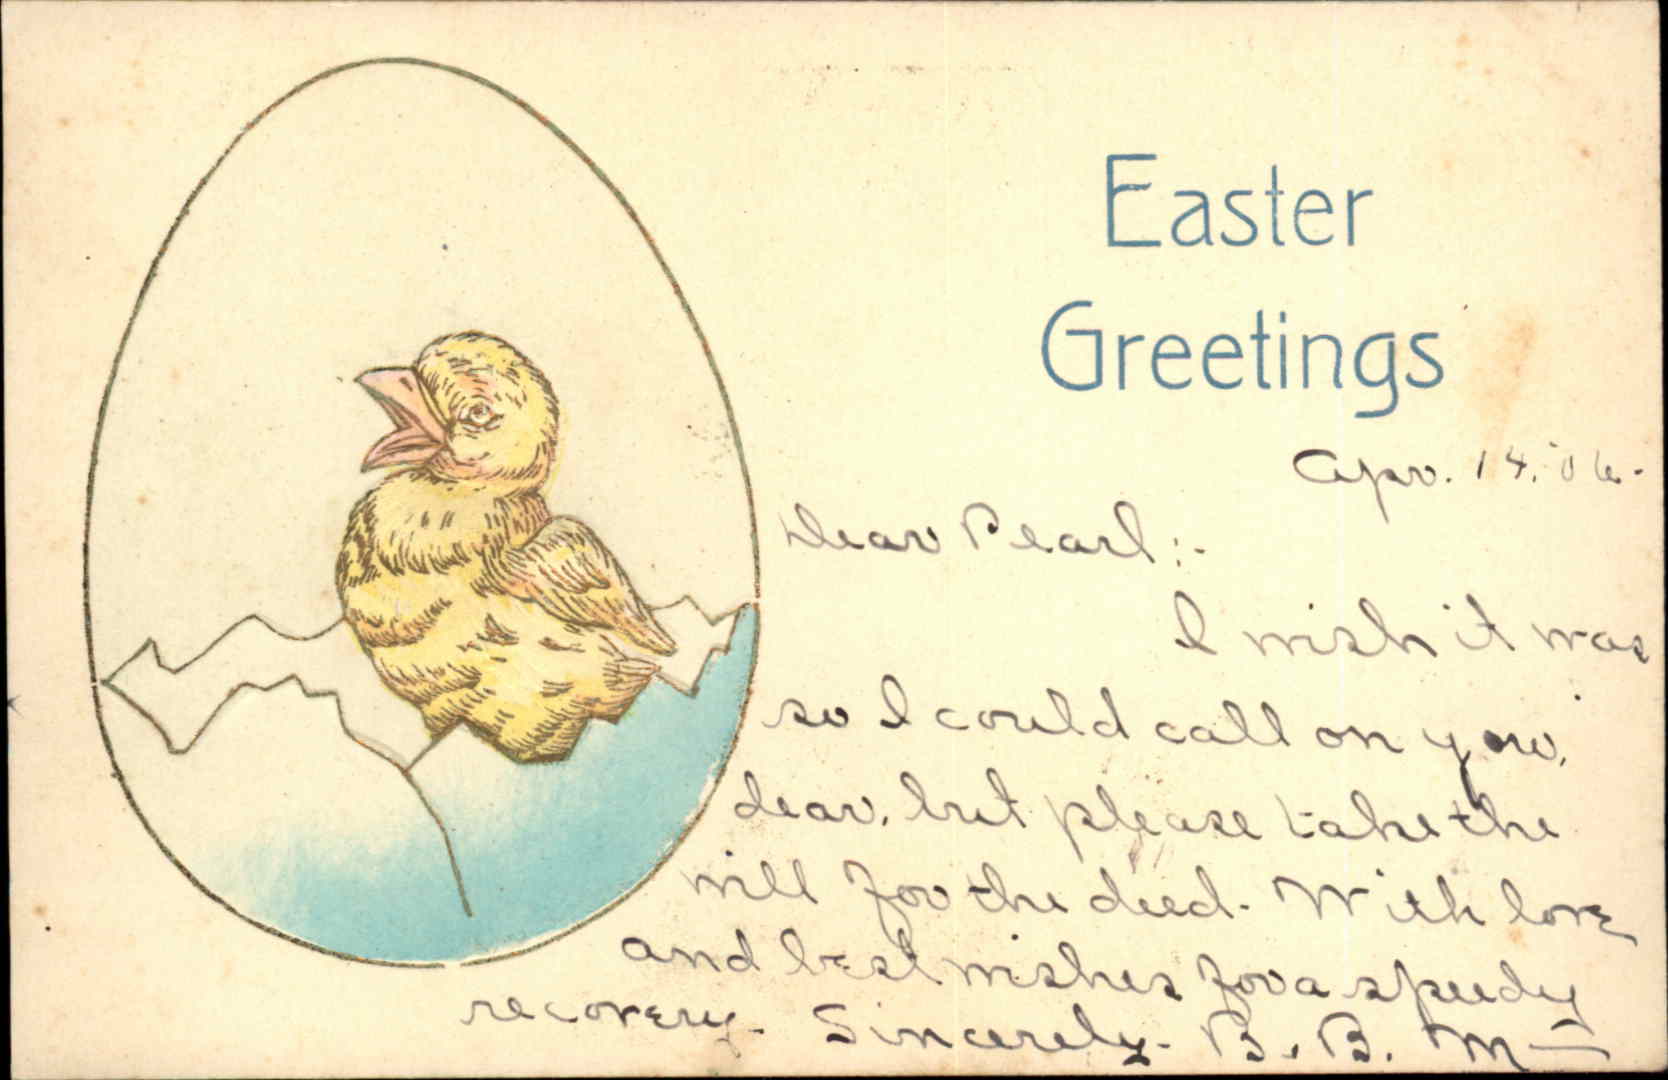 Easter
Greetings
Apr. 14, '06.
Dear Pearl:-
I wish it was
so I could call on you,
dear, but please take the
will for the deed. With love
and best wishes for a speedy
recovery. Sincerely. B. B. M—